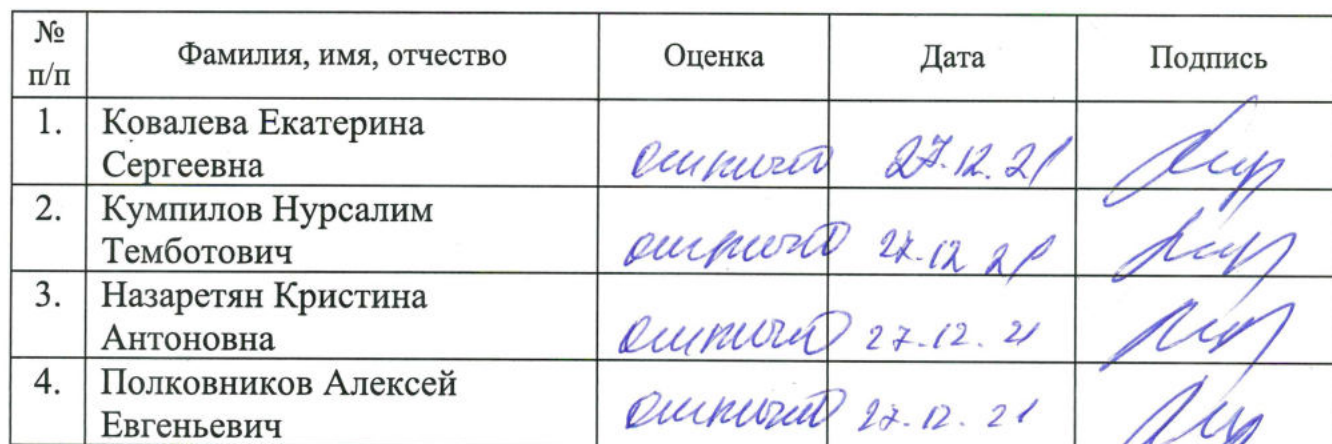 № п/п Фамилия, имя, отчество Оценка Дата Подпись
1. Ковалева Екатерина
Сергеевна отлично 27.12.21
2. Кумпилов Нурсалим
Темботович отлично 27.12 21
3. Назаретян Кристина
Антоновна отлично 27.12.21
4. Полковников Алексей
Евгеньевич отлично 27.12.21